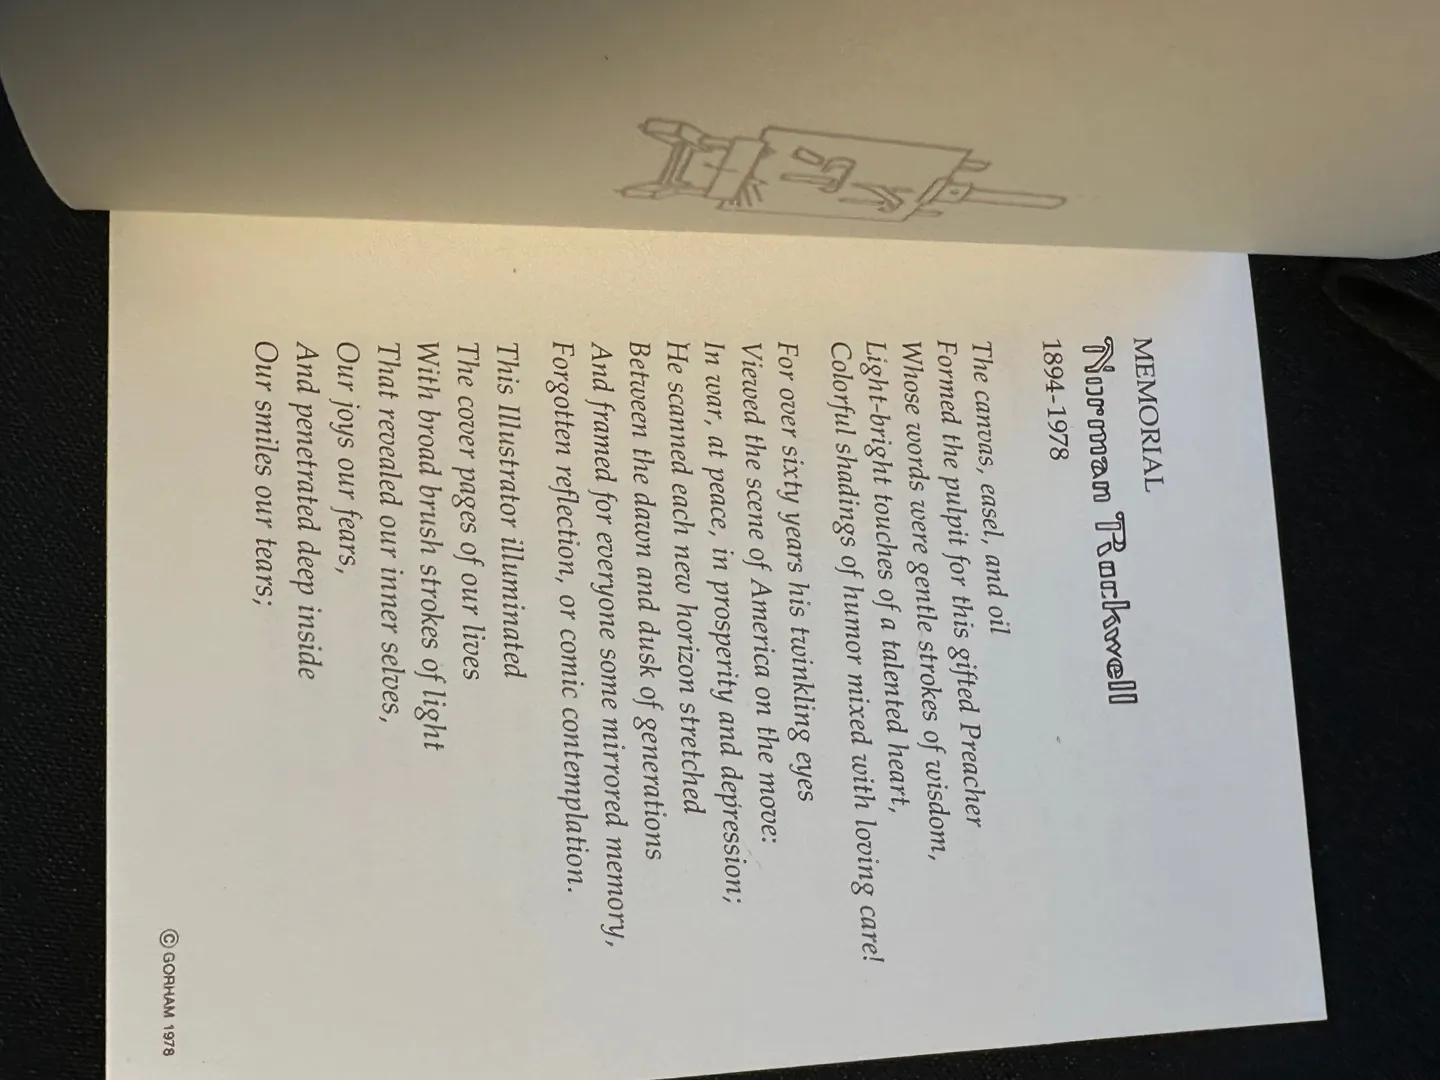 MEMORIAL
Norman Rockwell
1894-1978
The canvas, easel, and oil
Formed the pulpit for this gifted Preacher
Whose words were gentle strokes of wisdom,
Light-bright touches of a talented heart,
Colorful shadings of humor mixed with loving care!
For over sixty years his twinkling eyes
Viewed the scene of America on the move:
In war, at peace, in prosperity and depression;
He scanned each new horizon stretched
Between the dawn and dusk of generations
And framed for everyone some mirrored memory,
Forgotten reflection, or comic contemplation.
This Illustrator illuminated
The cover pages of our lives
With broad brush strokes of light
That revealed our inner selves,
Our joys our fears,
And penetrated deep inside
Our smiles our tears;
© GORHAM 1978